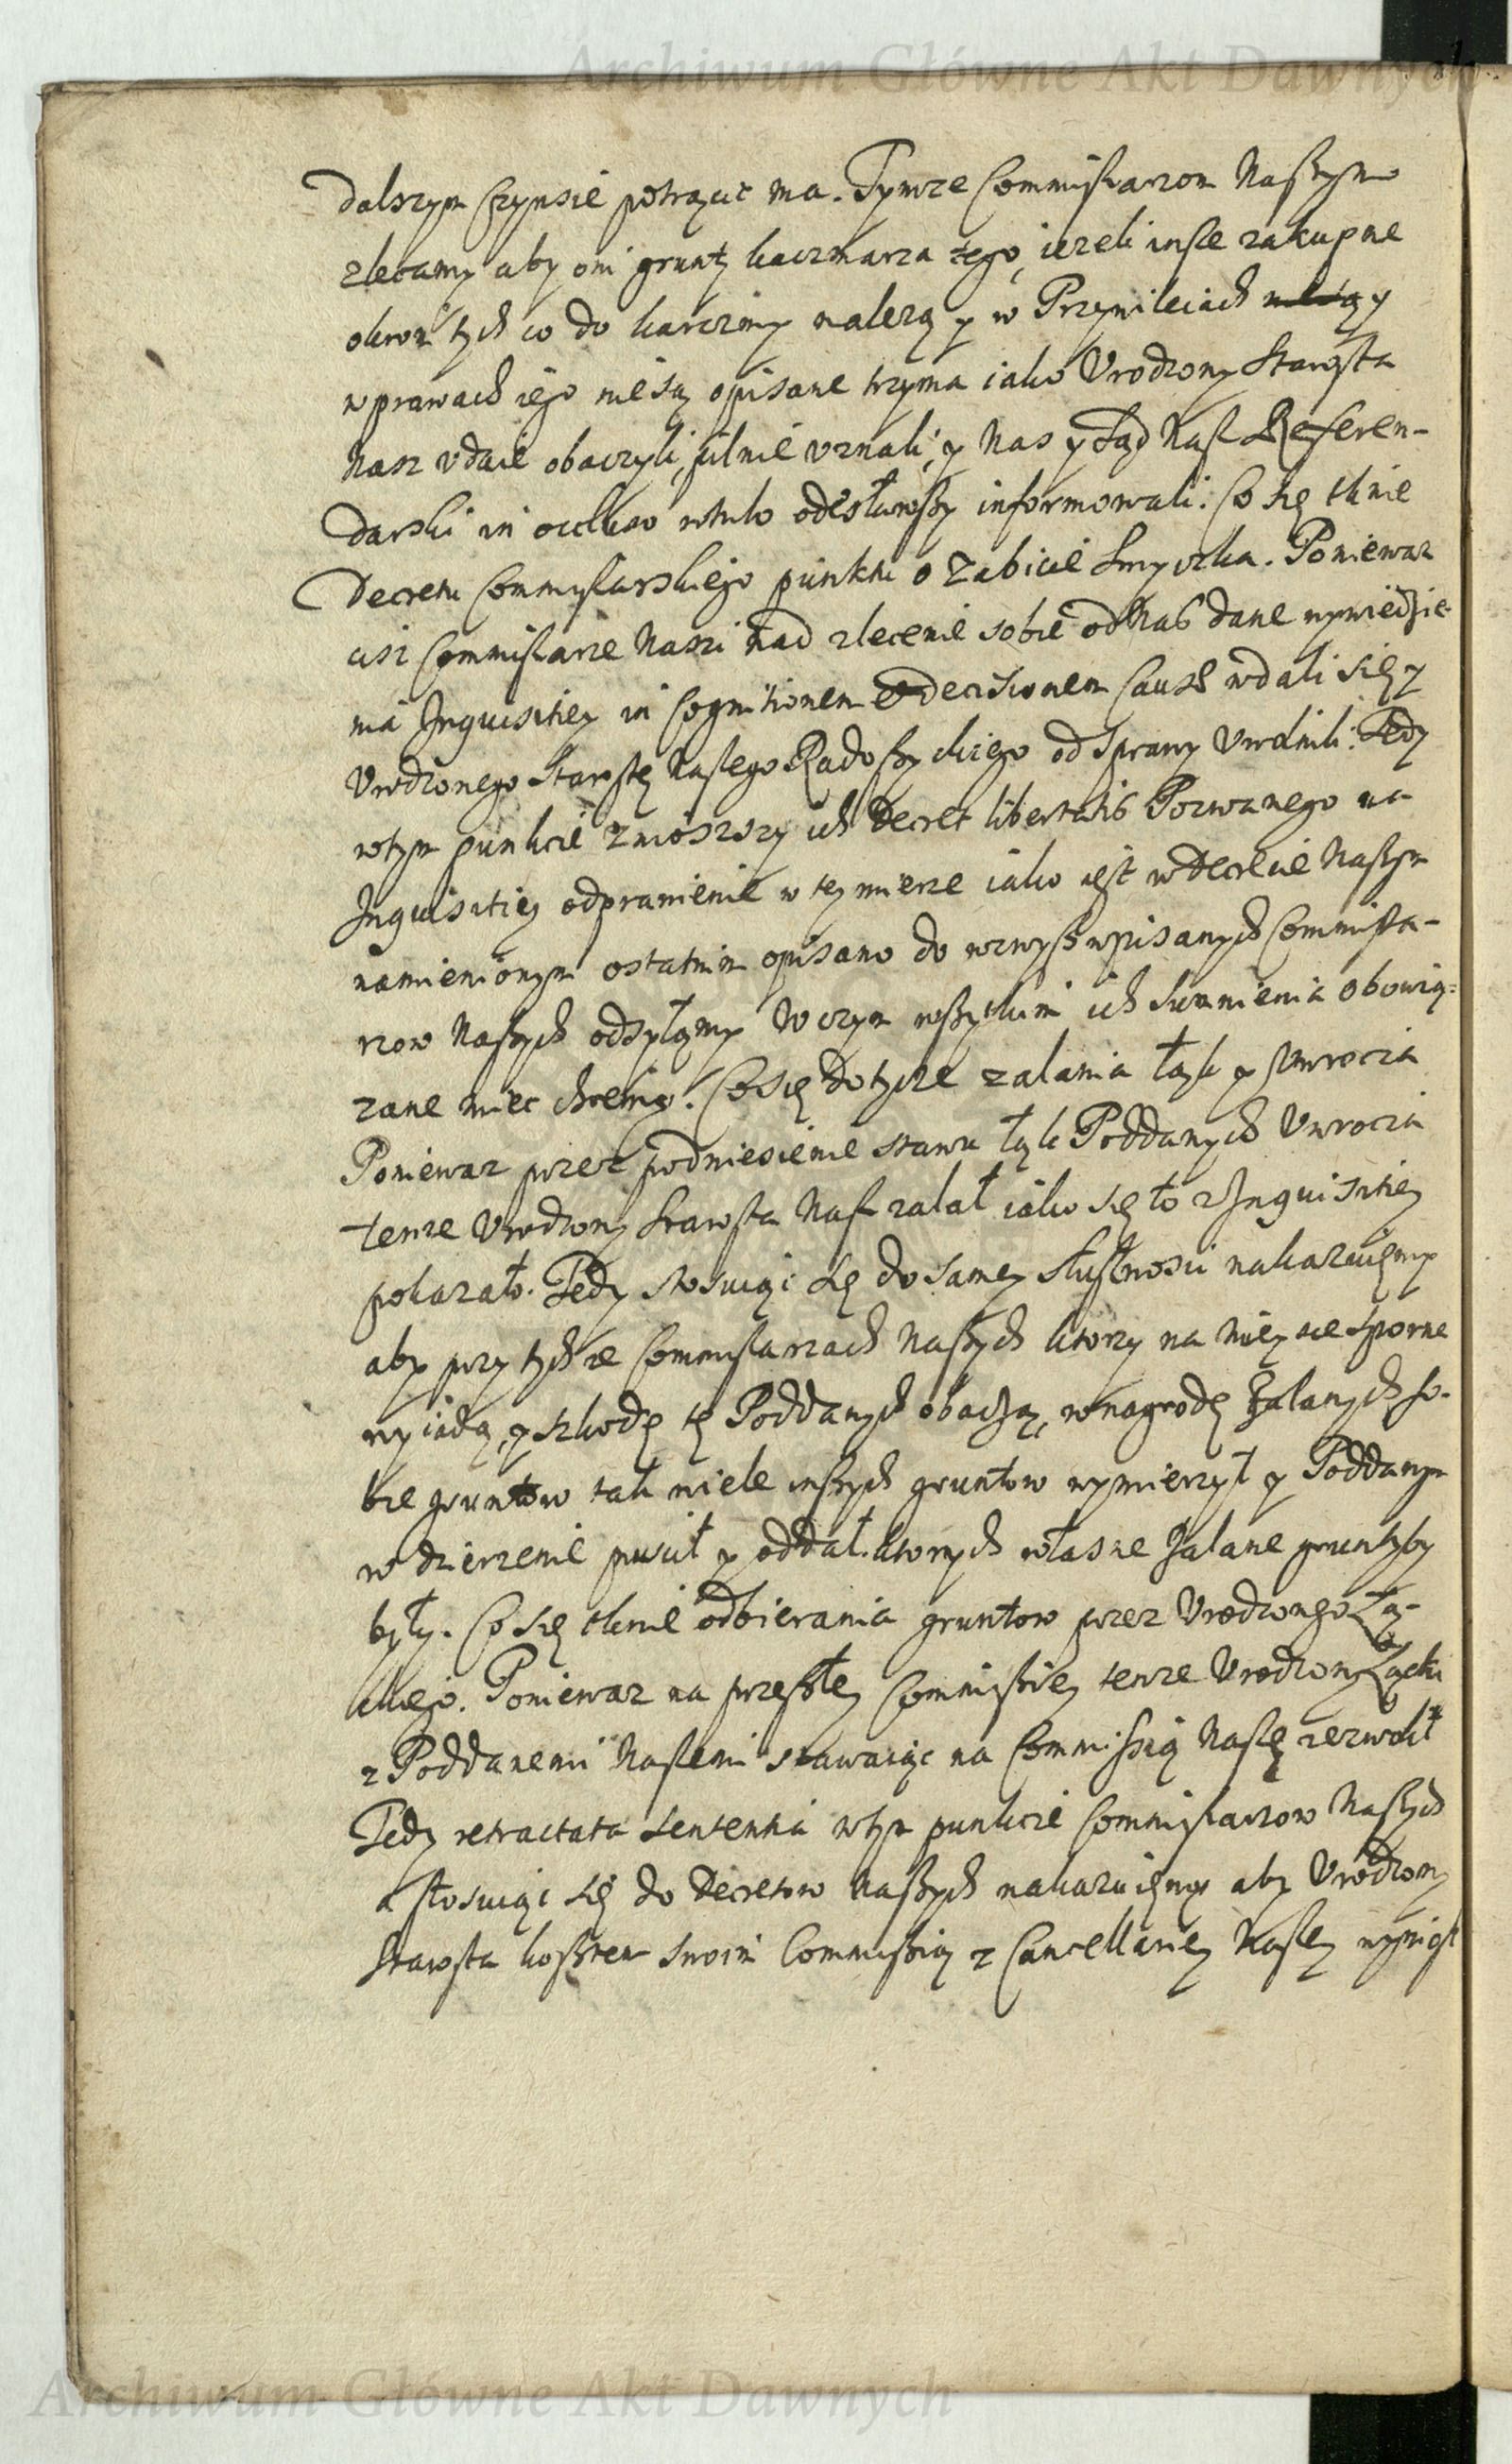 Archiwum Główne Akt Dawnych
dalszym Czynsie potrącić ma. Tymze Commissarzom Naszym
zlecamy aby oni grunty kaczmarza tego, iezeli insze zakupne
okrom tych co do karczmy nalezą y w Przywileiach y
w prawach iego nie są opisane trzyma iako Vrodzony Starosta
Nasz vdaie obaczyli, pilnie vznali, y Nas y Sąd Nasz Referen-
darski in occluso rotulo odesławszy informowali. Co się tknie
Decretu Commissarskiego punktu o Zabicie Smyczka. Poniewaz
cisz Commissarze Naszi nad zlecenie sobie od Nas dane wywiedzie-
nia Inquisitiey in Cognitionem et decisionem Causae wdali się y
Vrodzonego Starostę Naszego Radoszyckiego od Sprawy Vwolnili. Tedy
w tym punkcie zniosszy ich Decret libertatis Pozwanego na
Inquisitiey odprawienie w tey mierze iako iest w Decrecie Naszym
namienionym ostatnim opisano do wzwysz wpisanych Commissa-
rzow Naszych odsyłamy W czym wszytkim ich Sumnienia obowią=
zane miec chcemy. Co się dotycze zalania łąk y Vwrocia
Poniewaz przez podniesienie stawu łąk Poddanych Vwrocia
tenze Vrodzony Starosta Nasz zalał iako się to z Inquisitiey
pokazało. Tedy stosuiąc się do samey słusznosci nakazuiemy
aby przy tychze Commissarzach Naszych ktorzy na mieysce sporne
wyiadą, y szkodę tę Poddanych obaczą, w nagrodę Zalanych so-
bie gruntow tak wiele inszych gruntow wymierzył y Poddanym
w dzierzenie puscił y oddał. ktorych własne Zalane grunty by
były. Co się tknie odbierania gruntow przez Vrodzonego Łąc-
kiego. Poniewaz na przeszłey Commissiey tenze Vrodzony Łącki
z Poddanemi Naszemi stawaiąc na Commissią Naszę zezwolił
Tedy retractata sententia w tym punkcie Commissarzow Naszych
a stosuiąc się do Decretow Naszych nakazuiemy aby Vrodzony
Starosta kosztem swoim Commissią z Cancellariey Naszey wyniosł
Archiwum Główne Akt Dawnych